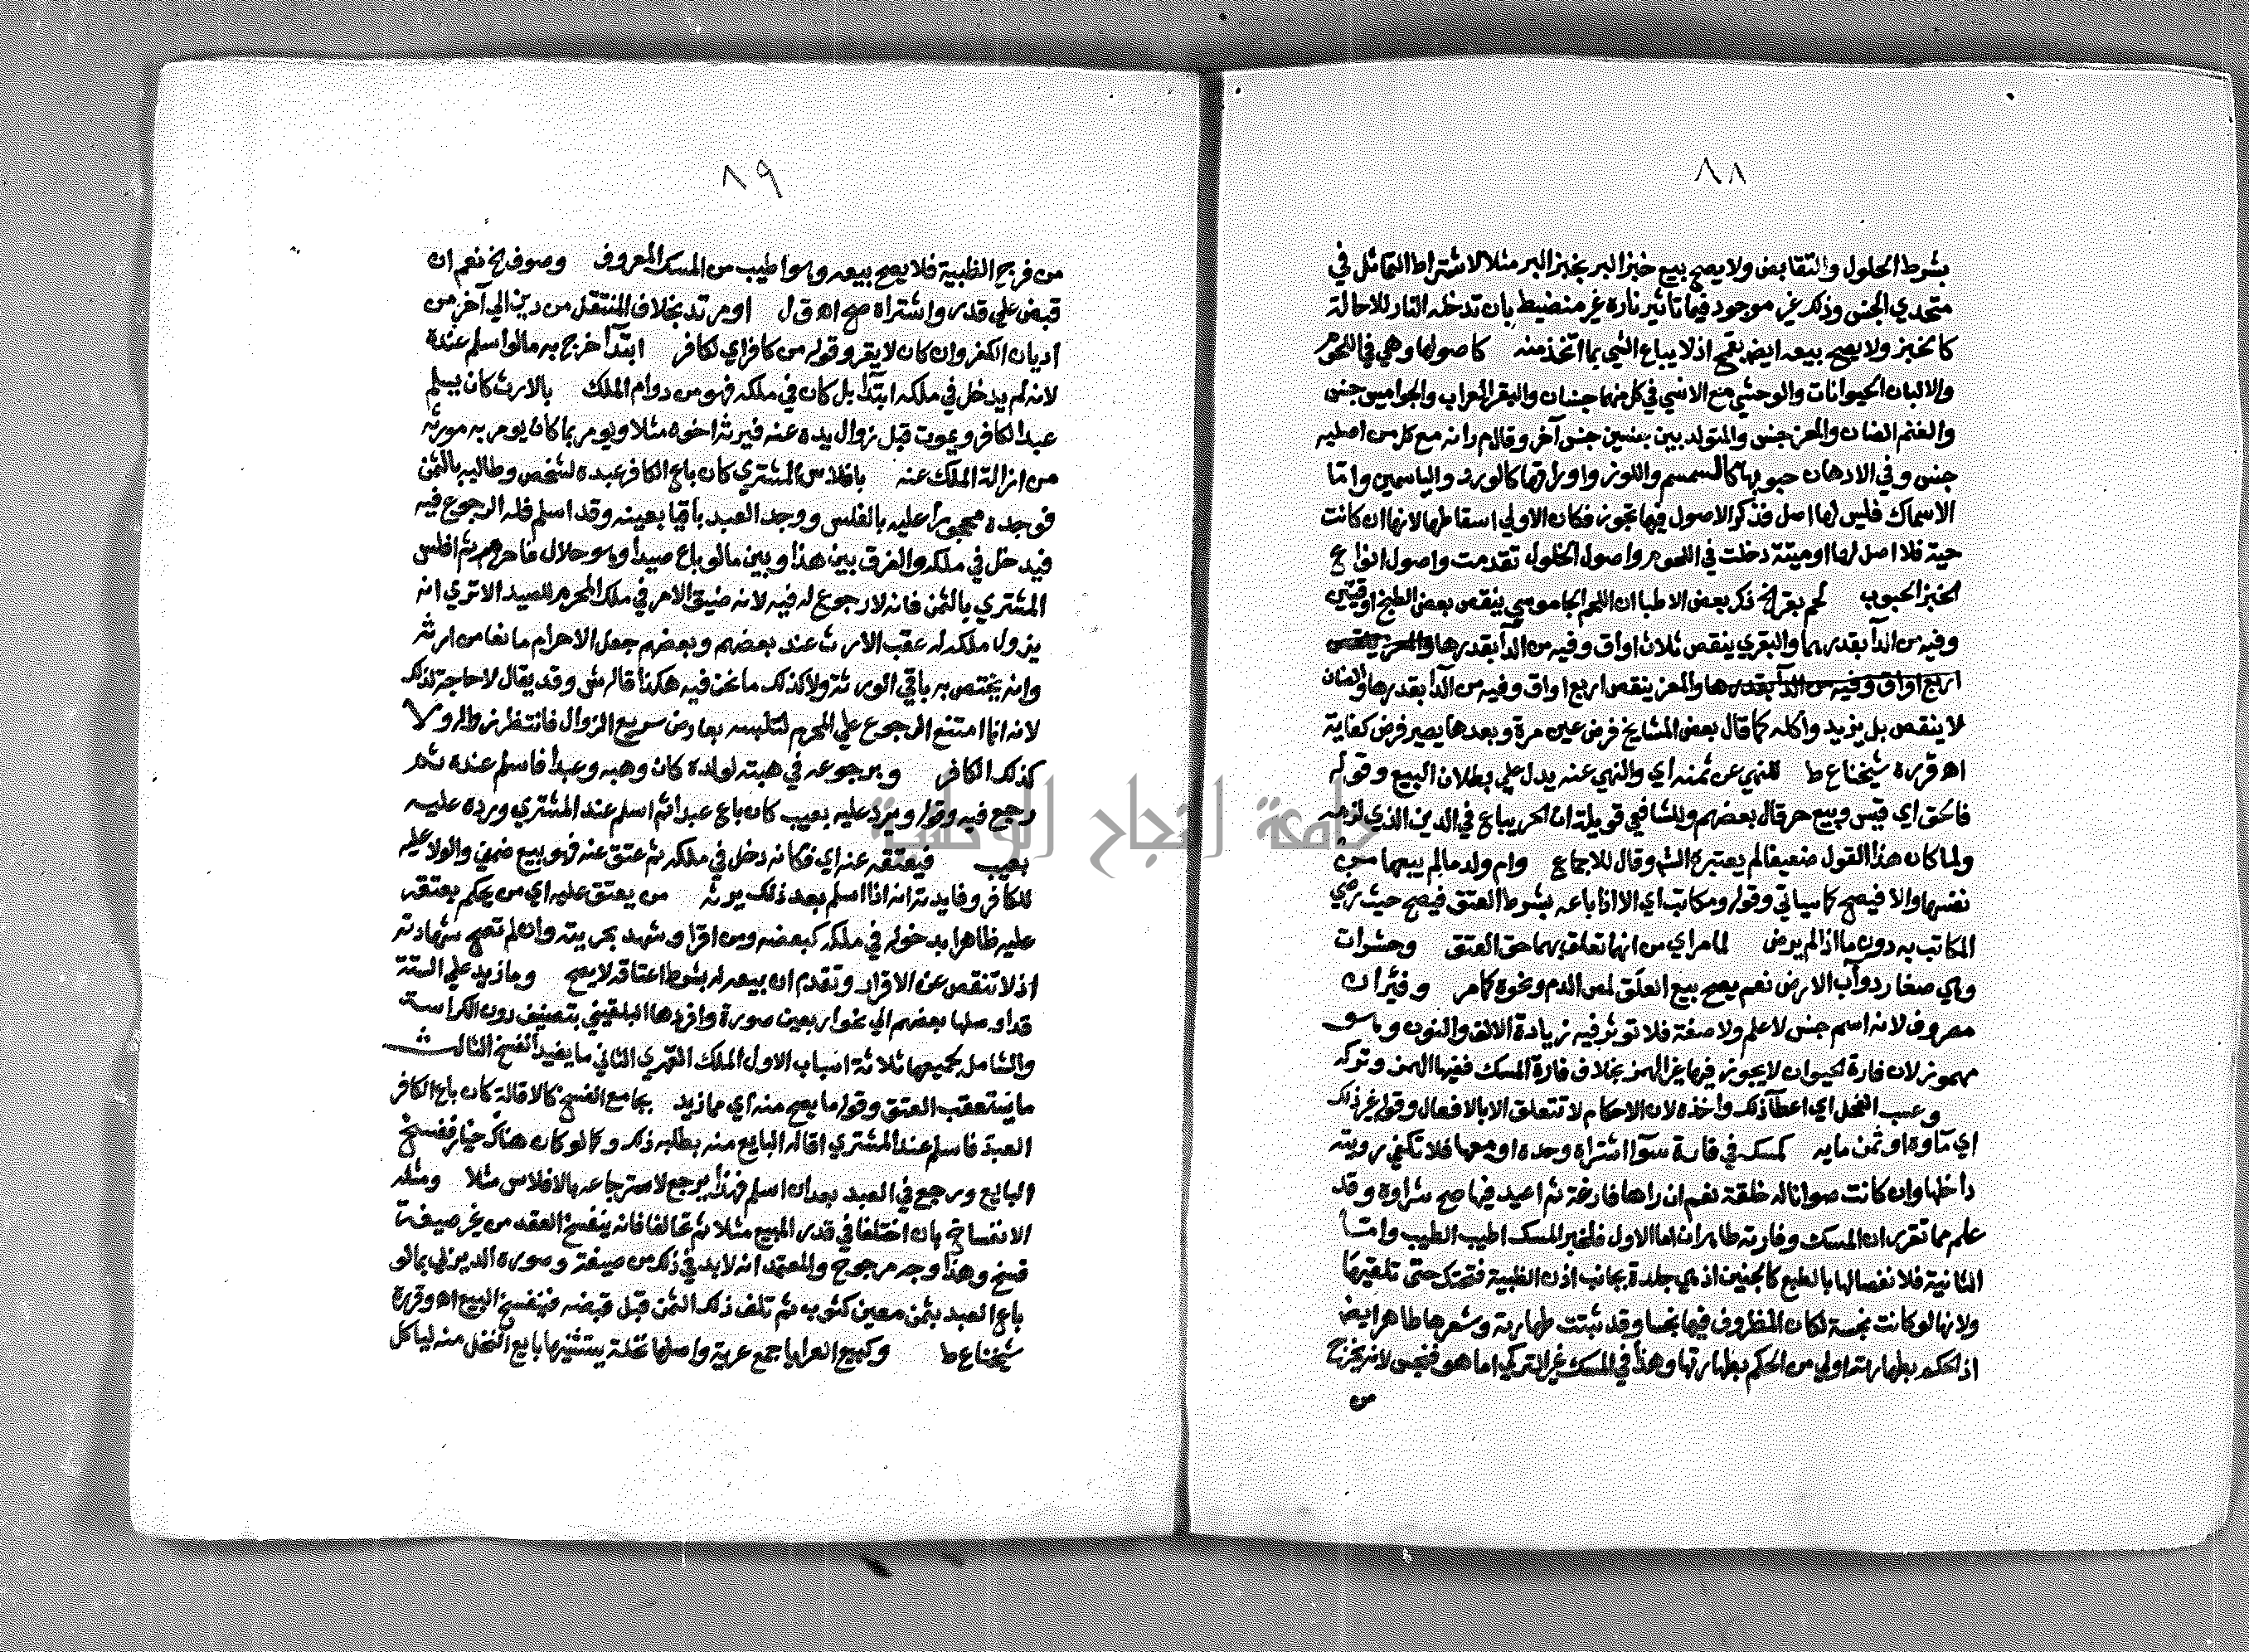 ٨٨
بشرط الحلول والتقابض ولا يصح بيع خبز البر بخبز البر مثلا لاشتراط التماثل في
متحدي الجنس وذلك غير موجود فيما تاثير ناره غير منضبط بان تدخله النار للاحالة
كالخبز ولا يصح بيعه ايض بقمح اذ لا يباع الشي بما اتخذ منه كاصولها وهي في اللحوم
والالبان الحيوانات والوحشي مع الانسي في كل منهما جنسان والبقر العراب والجواميس جنس
والغنم الضان والمعز جنس والمتولد بين جنسين جنس آخر وقال م ر انه مع كل من اصليه
جنس وفي الادهان حبوبها كالسمسم واللوز واوراقها كالورد والياسمين واما
الاسماك فليس لها اصل فذكر الاصول فيها تجوز فكان الاولي اسقاطها لانها ان كانت
حية فلا اصل لها او ميتة دخلت في اللحوم واصول الخلول تقدمت واصول انواع
الخبز الحبوب لحم بقر الخ ذكر بعض الاطبا ان اللحم الجاموسي ينقص بعض الطبخ اوقيتين
وفيه من الدآ بقدرهما والبقري ينقص ثلاث اواق وفيه من الدآ بقدرها والمعز ينقص
اربع اواق وفيه من الدآ بقدرها والمعز ينقص اربع اواق وفيه من الدآ بقدرها والضان
لا ينقص بل يزيد واكله كما قال بعض المشايخ فرض عين مرة وبعدها يصير فرض كفاية
اه قرره شيخنا ع ط للنهي عن ثمنه اي والنهي عنه يدل علي بطلان البيع وقوله
فالحق اي قيس وبيع حر قال بعضهم وللشافعي قويلة ان الحر يباع في الدين الذي لزمه
ولما كان هذا القول ضعيفا لم يعتبره الش وقال للاجماع وام ولد ما لم يبيعها من
نفسها والا فيصح كما سياتي وقوله ومكاتب اي الا اذا باعه بشرط العتق فيصح حيث رضي
المكاتب به دون ما اذا لم يرض لما مر اي من انها تعلق بهما حق العتق وحشرات
وهي صغار دوآب الارض نعم يصح بيع العلق لمص الدم ونحوه كما مر وفئران
معروف لانه اسم جنس لا علم ولا صفة فلا توثر فيه زيادة الالف والنون وهو
مهموز لان فارة الحيوان لا يجوز فيها غير الهمز بخلاف فارة المسك ففيها الهمز وتركه
وعسب الفحل اي اعطآ ذلك واخذه لان الاحكام لا تتعلق الا بالافعال وقوله غير ذلك
اي مآوه او ثمن مايه كمسك في فارة سوآ اشتراه وحده او معها فلا تكفي رويته
داخلها وان كانت صوانا له خلقة نعم ان راها فارغة ثم اعيد فيها صح شراوه وقد
علم مما تقرر ان المسك وفارته طاهران اما الاول فلخبر المسك اطيب الطيب واما
الثانية فلانفصالها بالطبع كالجنين اذ هي جلدة بجانب اذن الظبية فتحتك حتى تلقيها
ولانها لو كانت نجسة لكان المظروف فيها نجسا وقد ثبتت طهارته وشعرها طاهر ايض
اذ الحكم بطهارته اولي من الحكم بطهارتها وهذا في المسك غير التركي اما هو فنجس لانه يخرج
من
٨٩
من فرج الظبية فلا يصح بيعه وهو اطيب من المسك المعروف وصوف الخ نعم ان
قبض علي قدر واشتراه صح اه ق ل او مرتد بخلاف المنتقل من دين الي آخر من
اديان الكفر وان كان لا يقر وقوله من كافر اي لكافر ابتدآ خرج به ما لو اسلم عنده
لانه لم يدخل في ملكه ابتدآ بل كان في ملكه فهو من دوام الملك بالارث كان يسلم
عبد الكافر ويموت قبل زوال يده عنه فيرثه اخوه مثلا ويومر بما كان يومر به مورثه
من ازالة الملك عنه بافلاس المشتري كان باع الكافر عبده لشخص وطالبه بالثمن
فوجده محجورا عليه بالفلس ووجد العبد باقيا بعينه وقد اسلم فله الرجوع فيه
فيدخل في ملكه والفرق بين هذا وبين ما لو باع صيدا وهو حلال فاحرم ثم افلس
المشتري بالثمن فانه لا رجوع له فيه لانه ضيق الامر في ملك المحرم للصيد الا تري انه
يزول ملكه له عقب الارث عند بعضهم وبعضهم جعل الاحرام مانعا من ارثه
وانه يختص به باقي الورثة ولا كذلك ما نحن فيه هكذا قاله ش وقد يقال لا حاجة لذلك
لانه انما امتنع الرجوع علي المحرم لتلبسه بعارض سريع الزوال فانتظر زواله ولا
كذلك الكافر وبرجوعه في هبته لولده كان وهبه وعبدا فاسلم عنده ثم
رجع فيه وقوله ويرد عليه بعيب كان باع عبدا ثم اسلم عند المشتري ورده عليه
بعيب فيعتقه عنه اي فكانه دخل في ملكه ثم عتق عنه فهو بيع ضمني والولا عليه
للكافر وفايدته انه اذا اسلم بعد ذلك يرثه من يعتق عليه اي من يحكم بعتقه
عليه ظاهرا بدخوله في ملكه كبعضه ومن اقر او شهد بحريته وان لم تصح شهادته
اذ لا تنقص عن الاقرار وتقدم ان بيعه له بشرط اعتاقه لا يصح وما زيد علي الستة
قد اوصلها بعضهم الي نحو اربعين صورة وافردها البلقيني بتصنيف دون الكراسة
والشامل لجميعها ثلاثة اسباب الاول الملك القهري الثاني ما يفيد الفسخ الثالث
ما يستعقب العتق وقوله ما يصح منه اي مما زيد بجامع الفسخ كالاقالة كان باع الكافر
العبد فاسلم عند المشتري اقاله البايع منه بطلبه ذلك وكما لو كان هناك خيار ففسخ
البايع ورجع في العبد بعد ان اسلم فهذا يرجع لاسترجاعه بالافلاس مثلا ومثله
الانفساخ بان اختلفا في قدر المبيع مثلا ثم تحالفا فانه ينفسخ العقد من غير صيغة
فسخ وهذا وجه مرجوح والمعتمد انه لا بد في ذلك من صيغة وصوره الديربي بما لو
باع العبد بثمن معين كثوب ثم تلف ذلك الثمن قبل قبضه فينفسخ البيع اه وقرره
شيخنا ع ط وكبيع العرايا جمع عرية واصلها نخلة يستثنيها بايع النخل منه لياكل